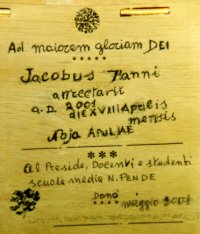 Ad maiorem gloriam DEI
*****
Jacobus Panni
A.D. 2001
die XVIII Aprilis
mensis
Noja APULIAE
***
al Preside, Docenti e studenti
scuola media N. FENDE
Dono
maggio